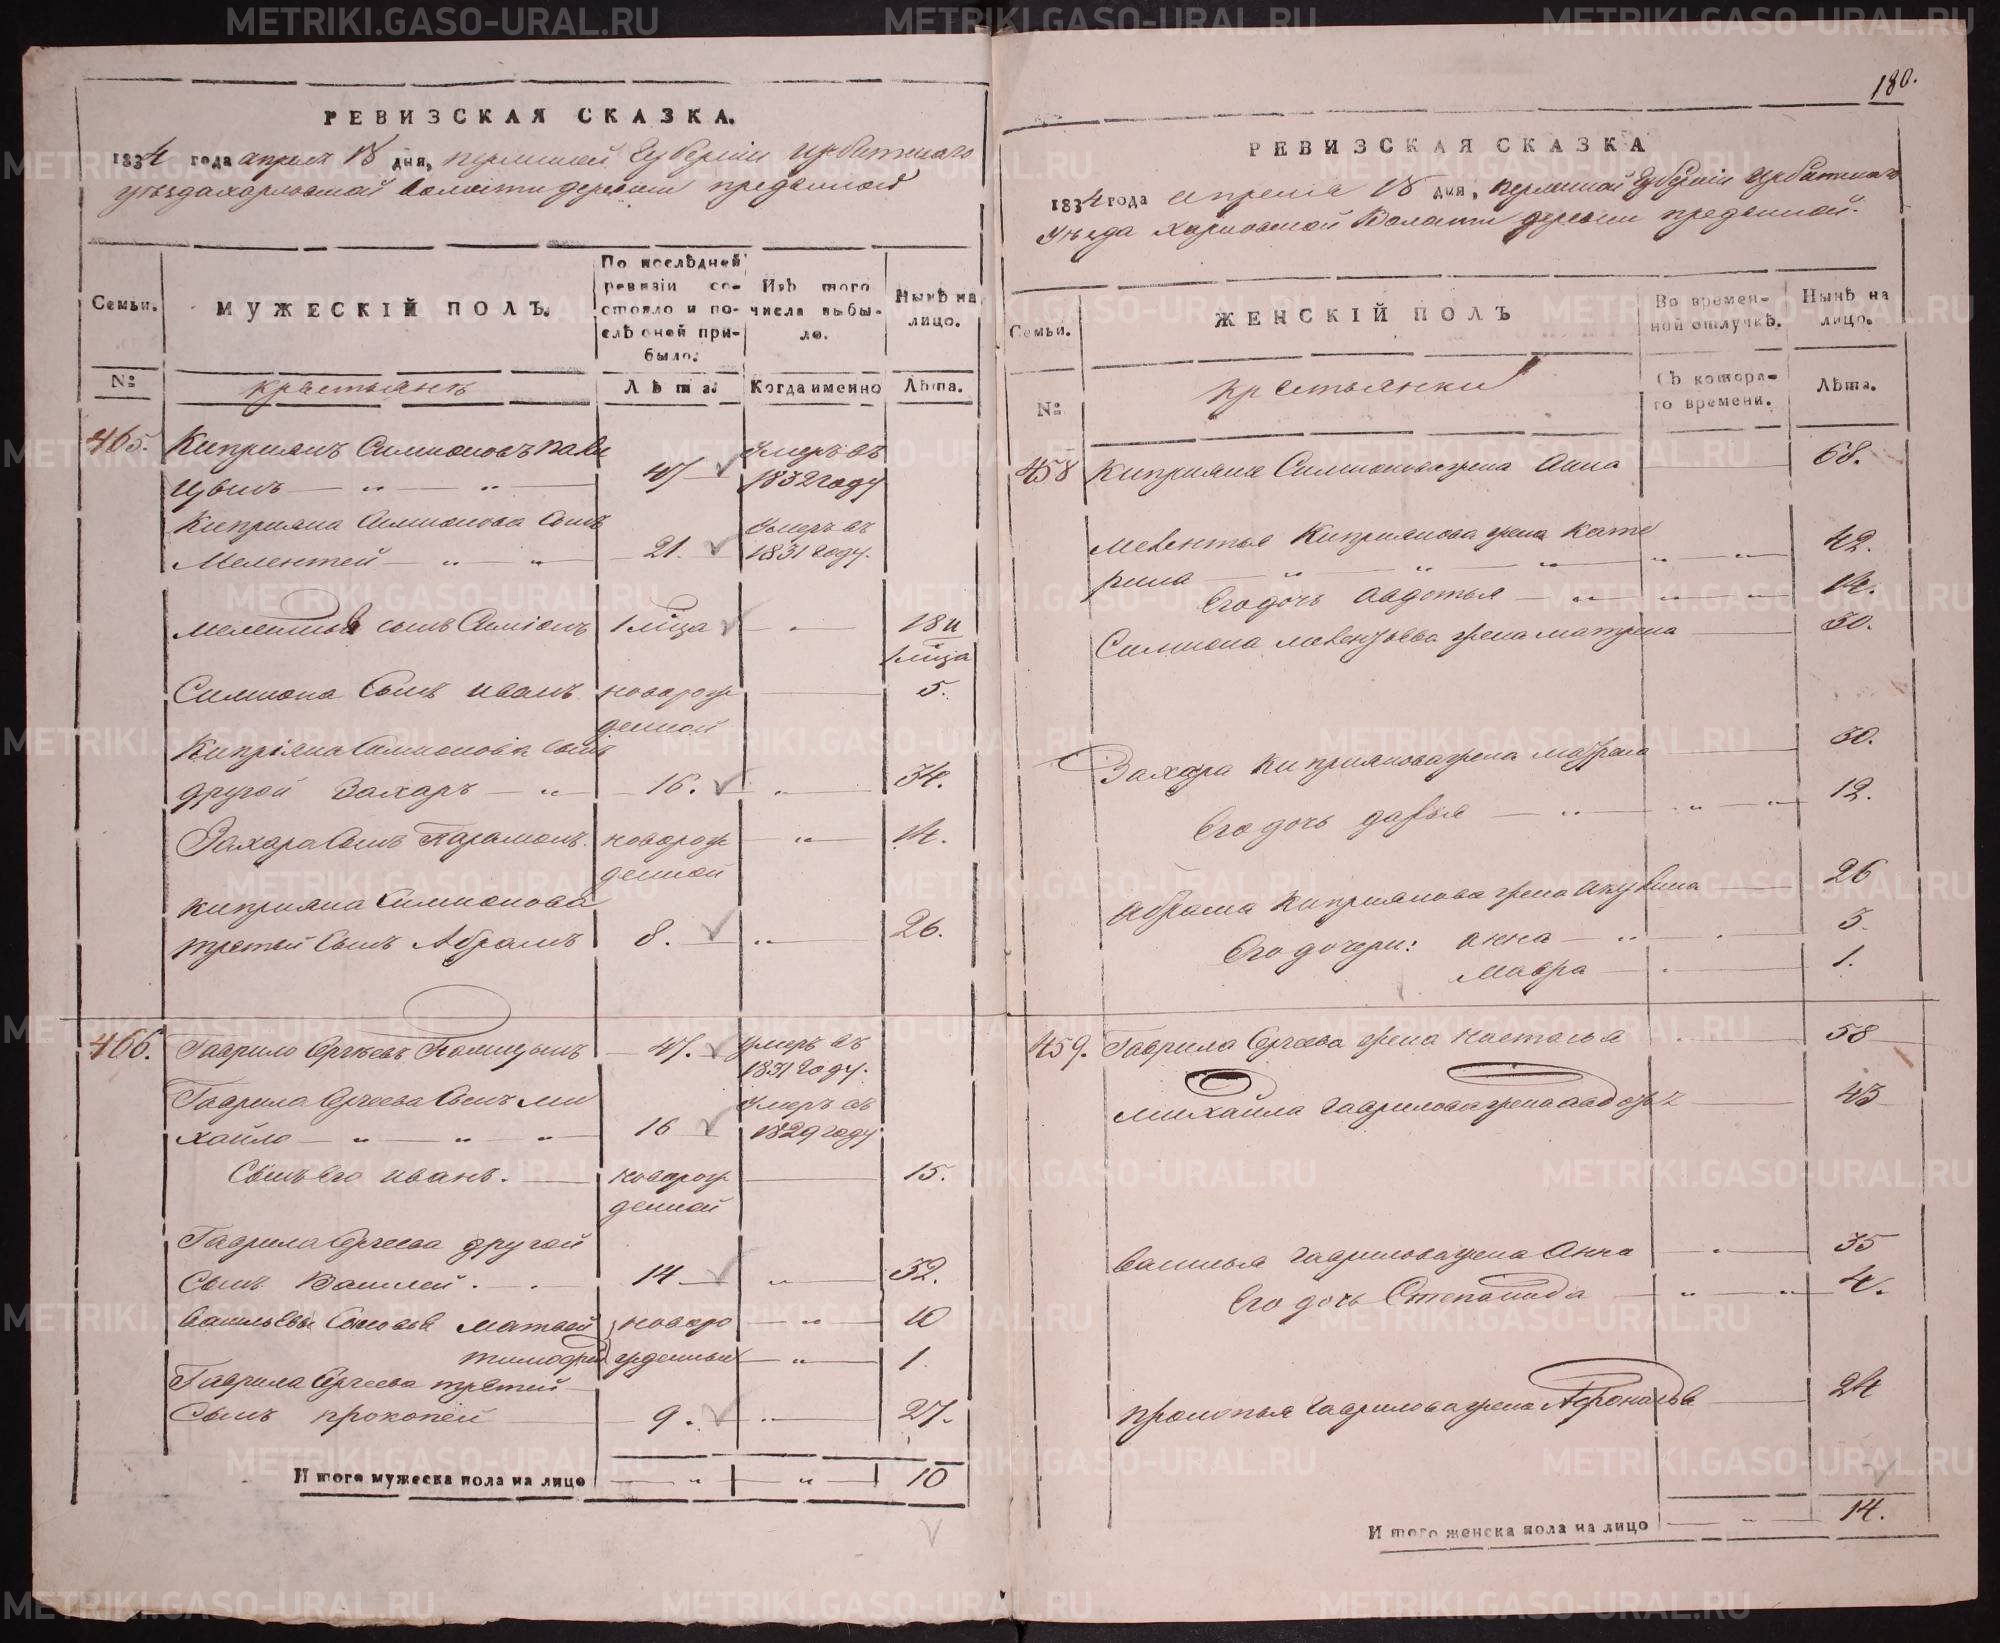 180.
РЕВИЗСКАЯ СКАЗКА.
1834 года апреля 18 дня, пермской губернии ирбитскаго
уѣзда харловской волости деревни
Семьи.
МУЖЕСКІЙ ПОЛЪ.
По послѣдней ревизіи состояло и послѣ оней прибыло.
Изъ того числа выбыло.
Нынѣ на лицо.
№
крестьянъ
Лѣта.
Когда именно
Лѣта.
465. Киприянъ Симионовъ
47 умеръ въ 1832 году
Киприяна Симионова сынъ
Мелентей — „ — „ 21. умеръ въ 1831 году.
Мелентья сынъ Симіонъ 1 мца — „ — 18 и 1 мца
Симиона сынъ иванъ новорожденной — 5.
Киприяна Симионова сынъ
другой Захаръ — „ — 16. „ — 34.
Захара сынъ Парамонъ. новорожденной — „ — 14.
киприяна Симионова
третей сынъ Абрамъ 8. — „ — 26.
466. Гаврило Сргѣевъ 47. умеръ въ 1831 году.
Гаврила Сргеева сынъ ми
хайло — „ — „ — „ 16 умеръ въ 1829 году
Сынъ его иванъ. — новорожденной — 15.
Гаврила Сргеева другой
сынъ Василей. 14 — „ — 32.
Васильевы сыновья матвей новоро — „ — 10
тимофей жденныя — „ — 1.
Гаврила Сргеева третей
сынъ прокопей 9. „ — 27.
Итого мужеска пола на лицо — „ — „ — 10
РЕВИЗСКАЯ СКАЗКА
1834 года апреля 18 дня, пермской губерніи ирбитскаго
уѣзда харловской волости деревни
Семьи.
ЖЕНСКІЙ ПОЛЪ
Во временной отлучкѣ.
Нынѣ на лицо.
№
крестьянки
Съ котораго времени.
Лѣта.
458 Киприяна Симионова жена Анна — 68.
мелентья Киприянова жена кате
рина — „ — „ — „ — 42.
Его дочь авдотья — „ — „ — 14.
Симиона мелентьева жена матрена — 30.
Захара киприянова жена матрена — 30.
Его дочь дарья — „ — „ — 12.
Абрама киприянова жена акулина — 26
Его дочери: анна — „ — 3.
мавра — 1.
459. Гаврила Сргеева жена настасья — 58
михайла гаврилова жена авдотья — 43
Василья гаврилова жена Анна — 35
Его дочь Степанида — „ — „ — 4.
прокопья гаврилова жена — 24
Итого женска пола на лицо — „ — 14.
METRIKI.GASO-URAL.RU